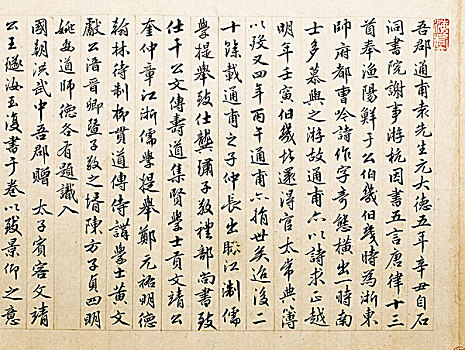 吾郡通甫袁先生元大德五年辛丑自石
洞書院謝事游杭因書五言唐律十三
首奉漁陽鮮于公伯幾伯幾時為浙東
帥府都曹吟詩作字奇態橫出一時南
士多慕與之游故通甫亦以詩求正越
明年壬寅伯幾始遷得官太常典簿
以歿又四年丙午通甫亦捐世矣迨後二
十餘載通甫之子仲長出際江淛儒
學提舉致仕龔璛子敬禮部尚書致
仕干公文傳壽道集賢學士貢文靖公
奎仲章江浙儒學提舉鄭元祐明德
翰林待制柳貫道傳侍講學士黃文
獻公溍晉卿暨子敬之壻陳方子貞四明
姚安道師德各有題識入
國朝洪武中吾郡贈 太子賓客文靖
公王璲汝玉復書于卷以致景仰之意